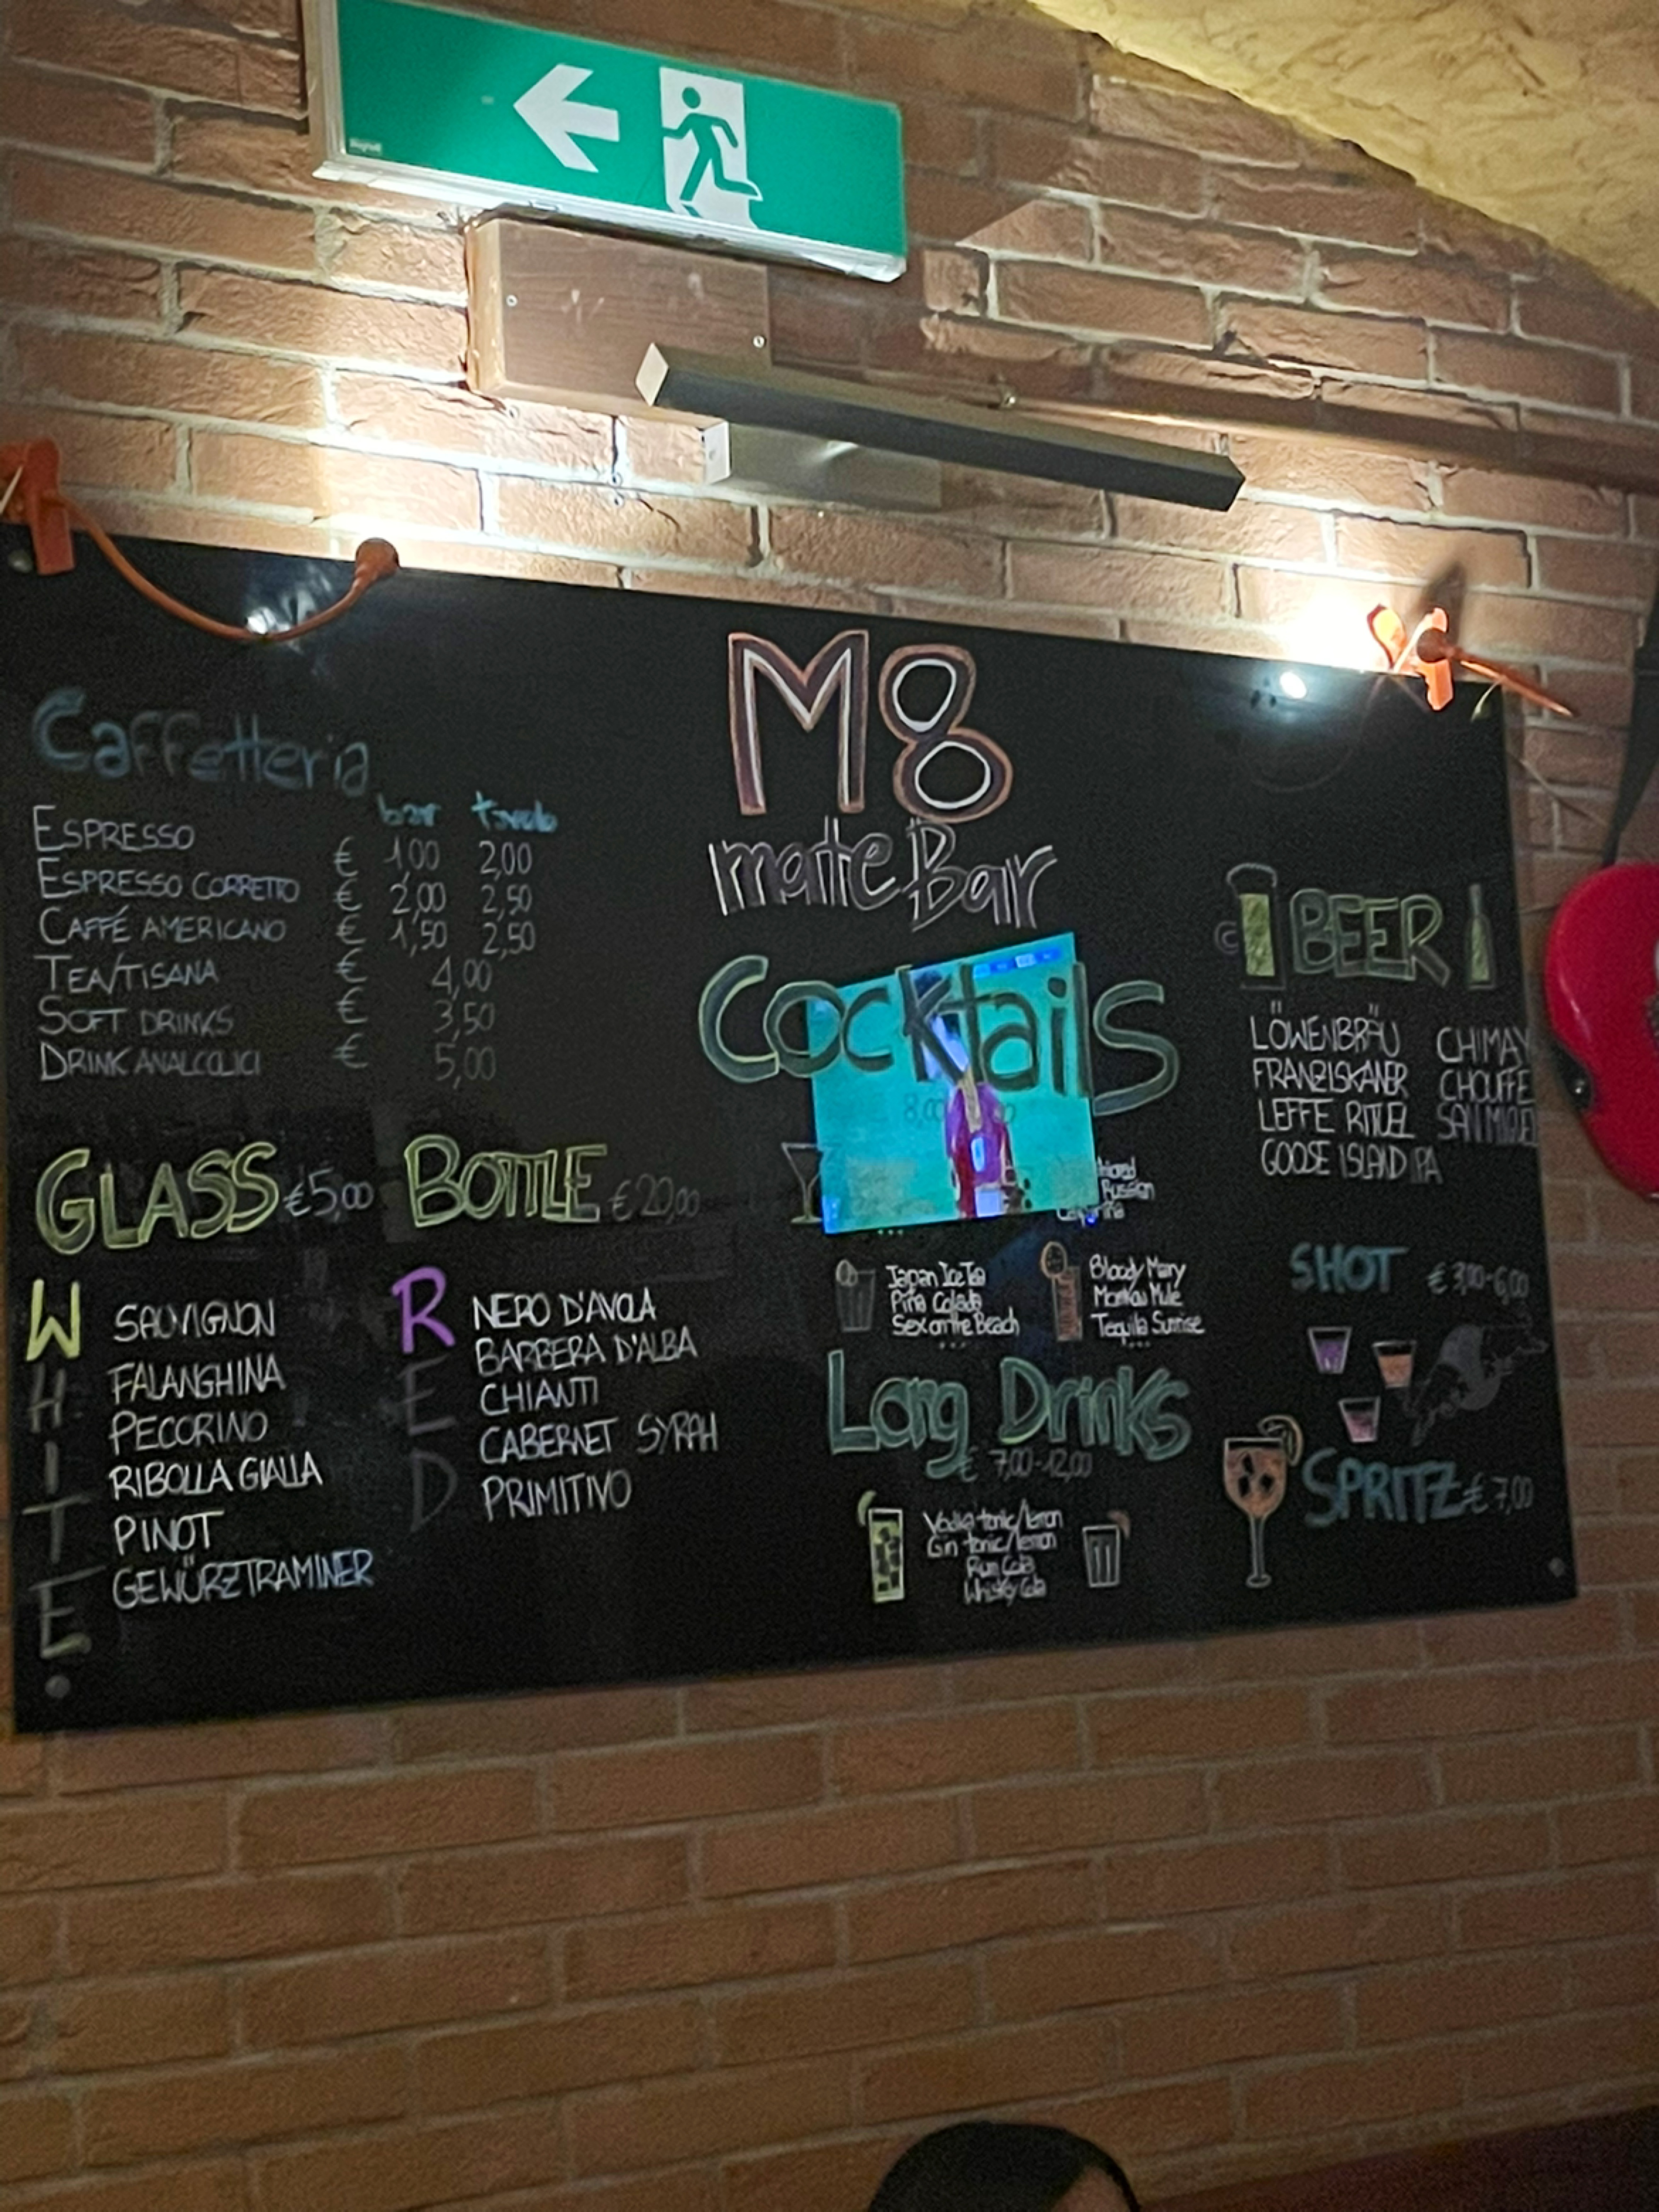 Caffetteria
bar tavolo
ESPRESSO € 1,00 2,00
ESPRESSO CORRETTO € 2,00 2,50
CAFFÉ AMERICANO € 1,50 2,50
TEA/TISANA € 4,00
SOFT DRINKS € 3,50
DRINK ANALCOLICI € 5,00
GLASS €5,00
BOTTLE €20,00
WHITE
SAUVIGNON
FALANGHINA
PECORINO
RIBOLLA GIALLA
PINOT
GEWÜRZTRAMINER
RED
NERO D'AVOLA
BARBERA D'ALBA
CHIANTI
CABERNET SYRAH
PRIMITIVO
M8
matte Bar
Cocktails
8,00
Russian
Japan Ice Tea
Piña Colada
Sex on the Beach
...
Bloody Mary
Moskow Mule
Tequila Sunrise
...
Long Drinks
€ 7,00-12,00
Vodka tonic/lemon
Gin tonic/lemon
Rum Cola
Whisky Cola
BEER
LÖWENBRÄU
FRANZISKANER
LEFFE RITUEL
GOOSE ISLAND IPA
CHIMAY
CHOUFFE
SAN MIGUEL
SHOT € 3,00-6,00
SPRITZ € 7,00